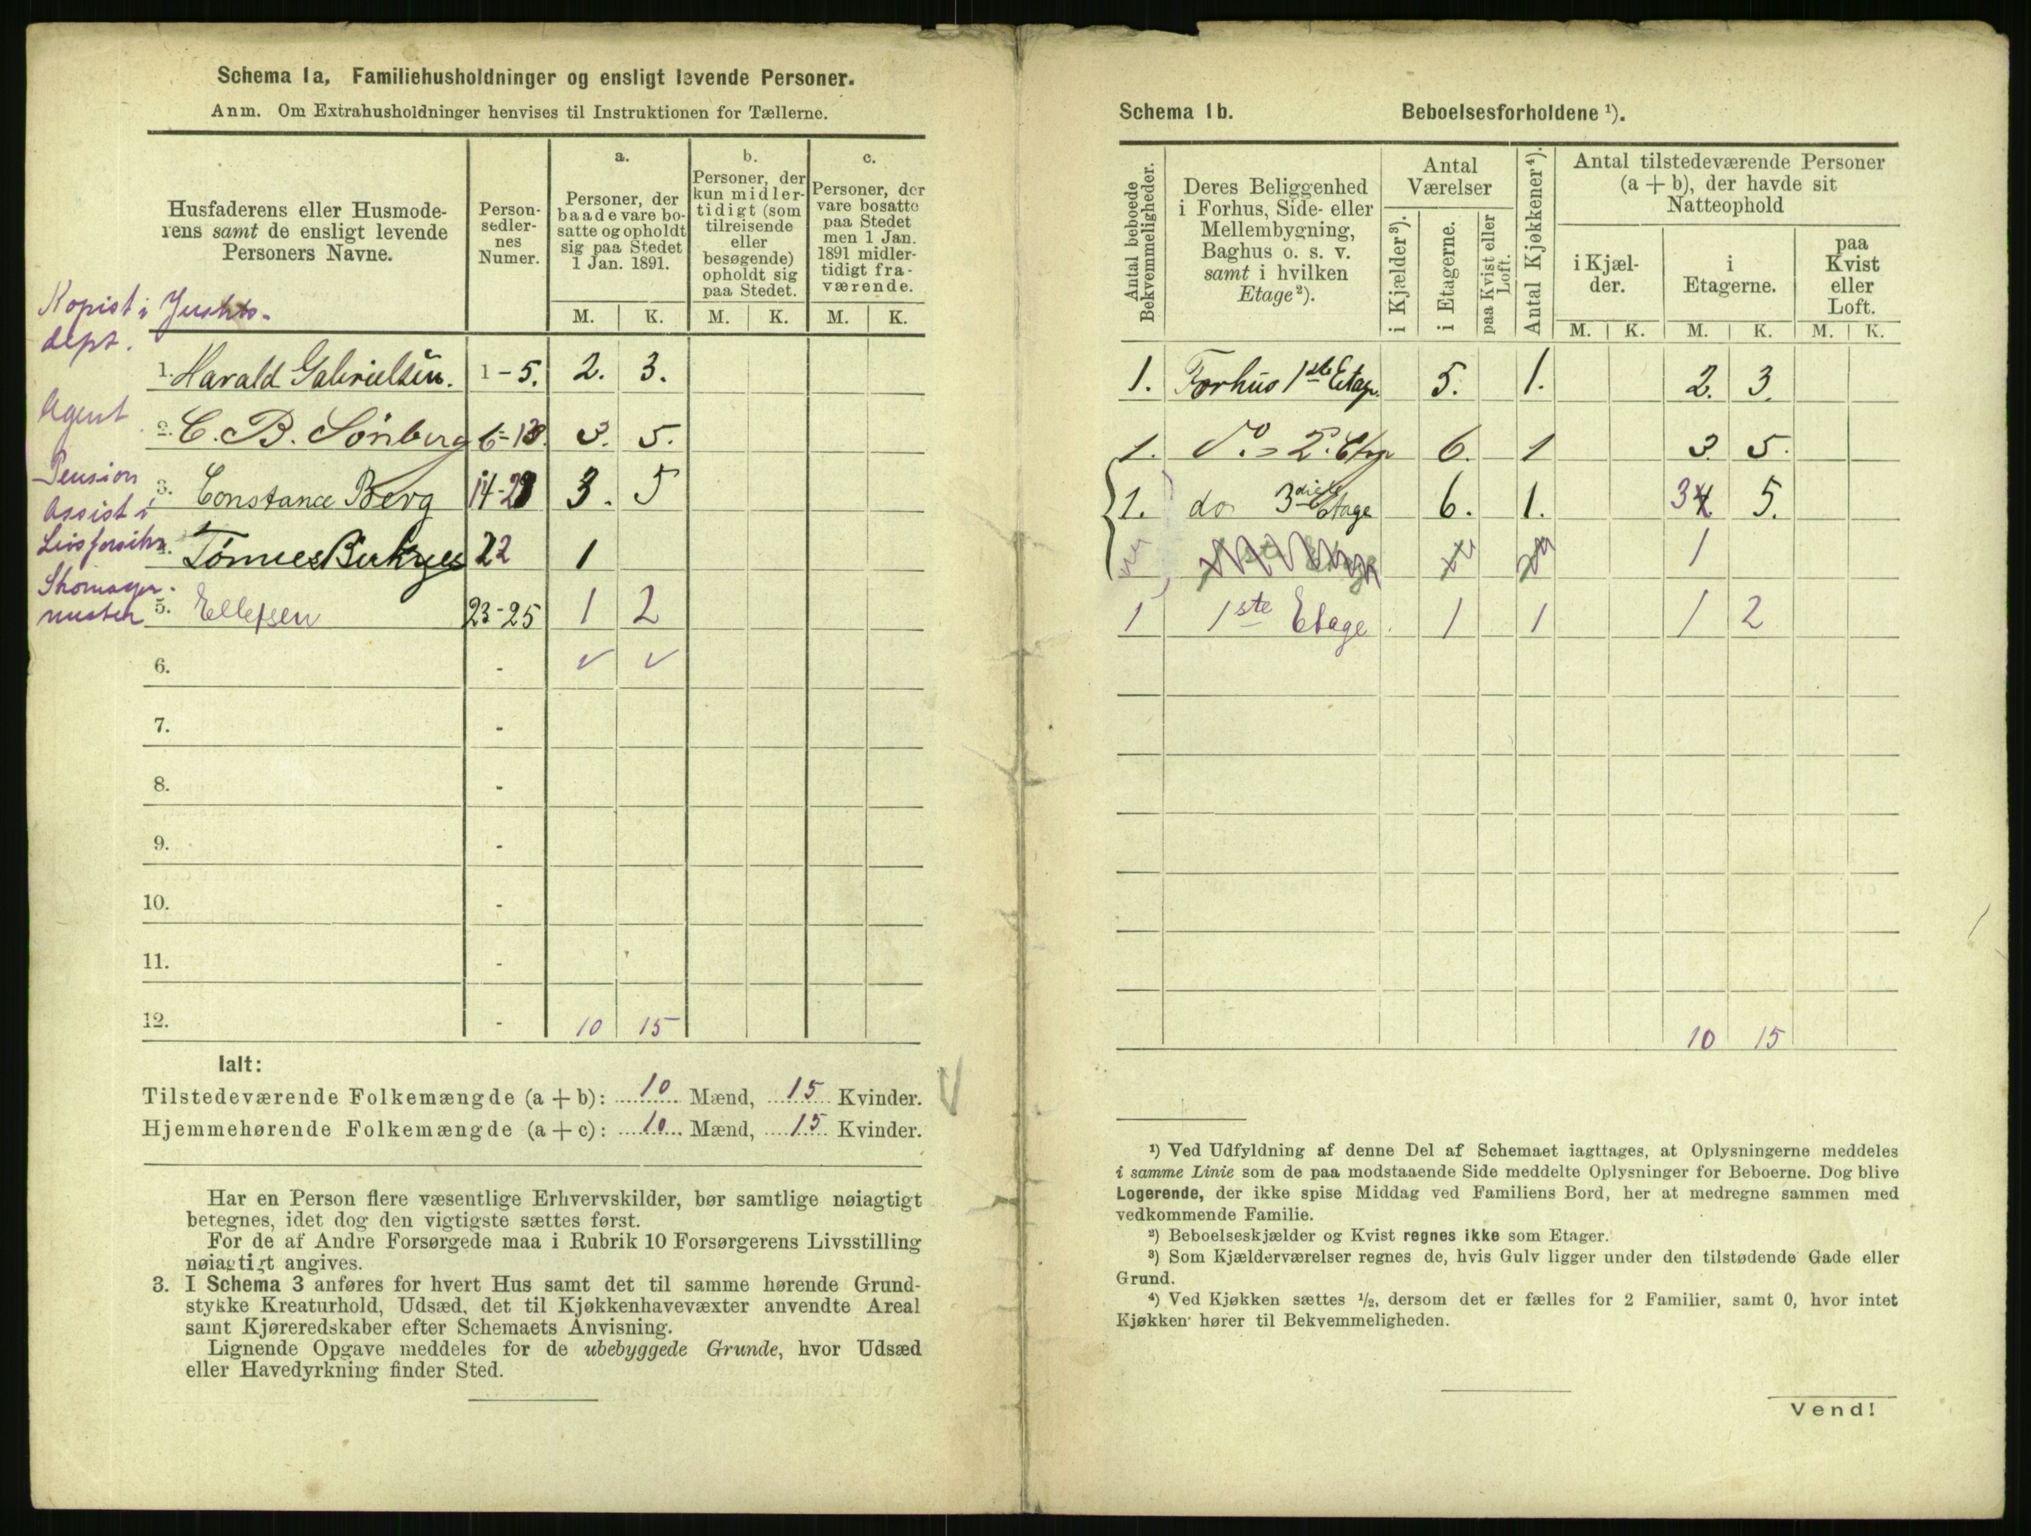 Schema 1a, Familiehusholdninger og ensligt levende Personer.
Anm. Om Extrahusholdninger henvises til Instruktionen for Tællerne.
Husfaderens eller Husmode-
rens samt de ensligt levende
Personers Navne.
Person-
sedler-
nes
Numer.
a.
Personer, der
baade vare bo-
satte og opholdt
sig paa Stedet
1 Jan. 1891.
b.
Personer, der
kun midler-
tidigt (som
tilreisende
eller
besøgende)
opholdt sig
paa Stedet.
c.
Personer, der
vare bosatte
paa Stedet
men 1 Jan.
1891 midler-
tidigt fra-
værende.
M. K. M. K. M. K.
Kopist i Justits-
dept.
1. Harald Gabrielsen. 1-5. 2. 3.
Agent
2. C. B. Sønberg 6-13. 3. 5.
Pension
3. Constance Berg 14-21 3. 5
Assist i
4. Tønnes 22 1
Skomager-
mester 5. Ellefsen 23-25 1 2
6. - ✓ ✓
7. -
8. -
9. -
10. -
11. -
12. - 10 15
Ialt:
Tilstedeværende Folkemængde (a + b): 10 Mænd, 15 Kvinder.
Hjemmehørende Folkemængde (a + c): 10 Mænd, 15 Kvinder.
Har en Person flere væsentlige Erhvervskilder, bør samtlige nøiagtigt
betegnes, idet dog den vigtigste sættes først.
For de af Andre Forsørgede maa i Rubrik 10 Forsørgerens Livsstilling
nøiagtigt angives.
3. I Schema 3 anføres for hvert Hus samt det til samme hørende Grund-
stykke Kreaturhold, Udsæd, det til Kjøkkenhavevæxter anvendte Areal
samt Kjøreredskaber efter Schemaets Anvisning.
Lignende Opgave meddeles for de ubebyggede Grunde, hvor Udsæd
eller Havedyrkning finder Sted.
Schema 1b. Beboelsesforholdene ¹).
Antal beboede
Bekvemmeligheder.
Deres Beliggenhed
i Forhus, Side- eller
Mellembygning,
Baghus o. s. v.
samt i hvilken
Etage²).
Antal
Værelser
i Kjælder³).
i Etagerne.
paa Kvist eller
Loft.
Antal Kjøkkener⁴).
Antal tilstedeværende Personer
(a + b), der havde sit
Natteophold
i Kjæl-
der.
i
Etagerne.
paa
Kvist
eller
Loft.
M. K. M. K. M. K.
1. Forhus 1ste Etage. 5. 1. 2. 3.
1. Do. " 2. Etage 6. 1 3. 5.
1. do 3die Etage 6. 1. 3 5.
1
1 1ste Etage 1 1 1 2
10 15
¹) Ved Udfyldning af denne Del af Schemaet iagttages, at Oplysningerne meddeles
i samme Linie som de paa modstaaende Side meddelte Oplysninger for Beboerne. Dog blive
Logerende, der ikke spise Middag ved Familiens Bord, her at medregne sammen med
vedkommende Familie.
²) Beboelseskjælder og Kvist regnes ikke som Etager.
³) Som Kjælderværelser regnes de, hvis Gulv ligger under den tilstødende Gade eller
Grund.
⁴) Ved Kjøkken sættes ½, dersom det er fælles for 2 Familier, samt 0, hvor intet
Kjøkken hører til Bekvemmeligheden.
Vend!